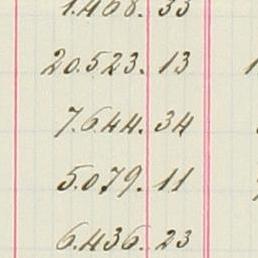 1.468. 33
20.523. 13
7.644. 34
5.079. 11
6.436. 23